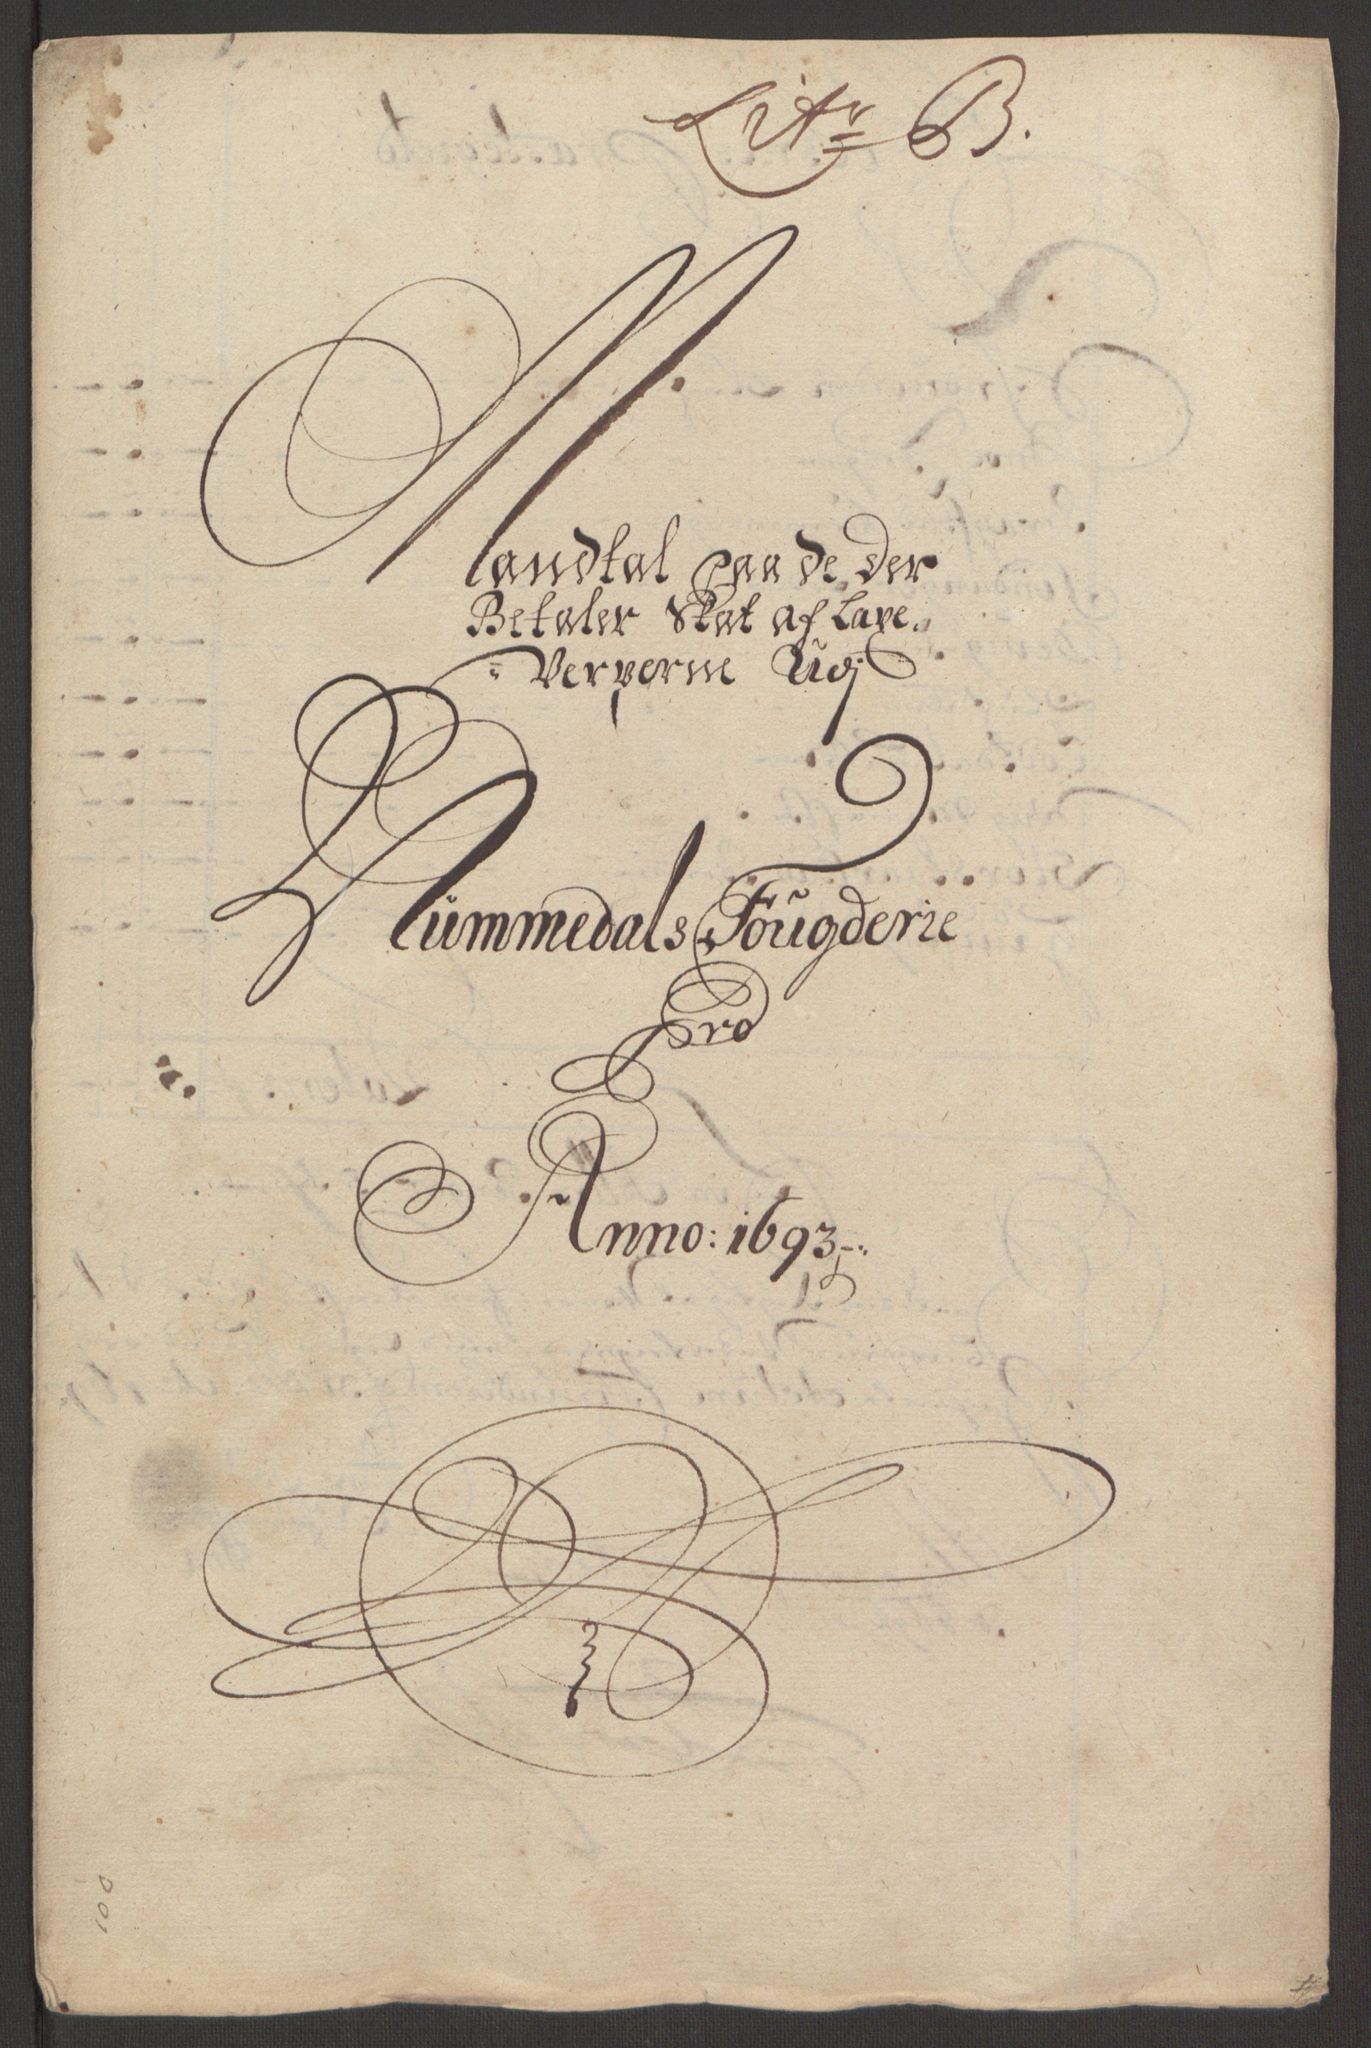 Litr B.
Mandtal paa de der
Betaler Skat af Lave
Ververne Udj
Nummedals Fougderie
Pro
Anno: 1693
100